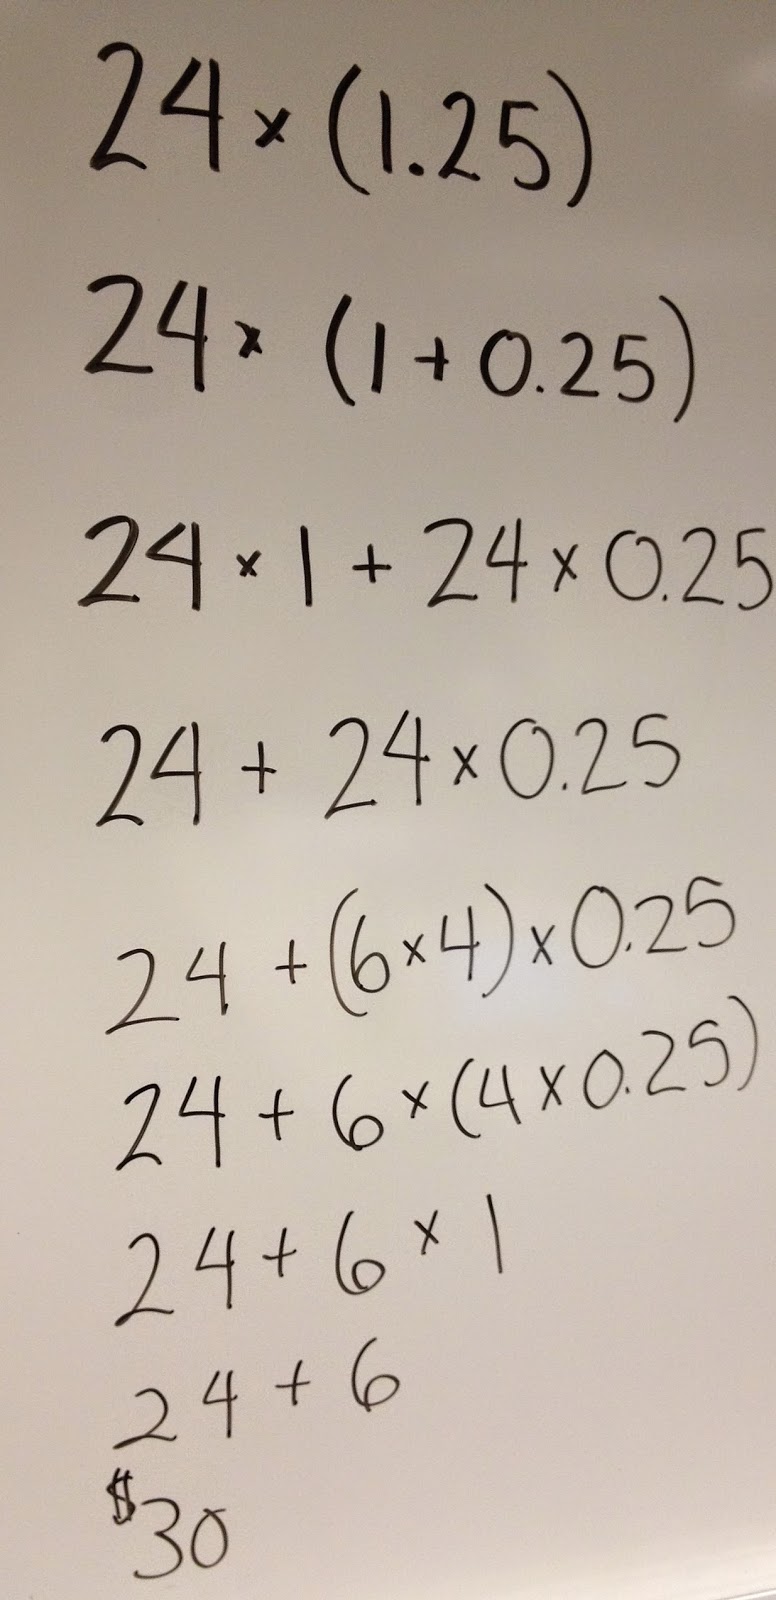 24 × (1.25)
24 × (1 + 0.25)
24 × 1 + 24 × 0.25
24 + 24 × 0.25
24 + (6 × 4) × 0.25
24 + 6 × (4 × 0.25)
24 + 6 × 1
24 + 6
$30